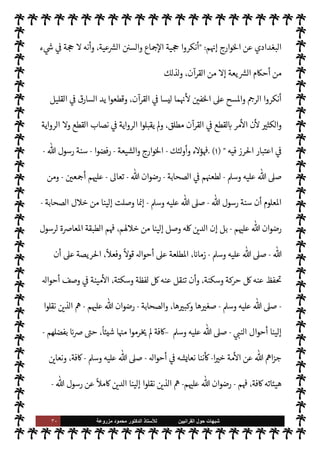 البغدادي عن الخوارج إنهم: "أنكروا حجية الإجماع والسنن الشرعية، وأنه لا حجة في شيء
من أحكام الشريعة إلا من القرآن، ولذلك
أنكروا الرجم والمسح على الخفين لأنهما ليسا في القرآن، وقطعوا يد السارق في القليل
والكثير لأن الأمر بالقطع في القرآن مطلق، ولم يقبلوا الرواية في نصاب القطع ولا الرواية
في اعتبار الحرز فيه " (١) .فهؤلاء وأولئك - الخوارج والشيعة - رفضوا - سنة رسول الله -
صلى الله عليه وسلم - لطعنهم في الصحابة - رضوان الله - تعالى - عليهم أجمعين - ومن
المعلوم أن سنة رسول الله - صلى الله عليه وسلم - إنما وصلت إلينا من خلال الصحابة -
رضوان الله عليهم - بل إن الدين كله وصل إلينا من خلالهم، فهم الطبقة المعاصرة لرسول
الله - صلى الله عليه وسلم - زمانا، المطلعة على أحواله قولاً وفعلاً، الحريصة على أن
تحفظ عنه كل حركة وسكنة، وأن تنقل عنه كل لفظة وسكتة، الأمينة في وصف أحواله
- صلى الله عليه وسلم - صغيرها وكبيرها، والصحابة - رضوان الله عليهم - هم الذين نقلوا
إلينا أحوال النبي - صلى الله عليه وسلم -كافة لم يخرموا منها شيئاً، حتى صرنا بفضلهم -
جزاهم الله عن الأمة خيرا-كأننا نعايشه في أحواله - صلى الله عليه وسلم - كافة، ونعاين
هيئاته كافة، فهم - رضوان الله عليهم- هم الذين نقلوا إلينا الدين كاملاً عن رسول الله -
شبهات حول القرآنيين للأستاذ الدكتور محمود مزروعة ٣٠